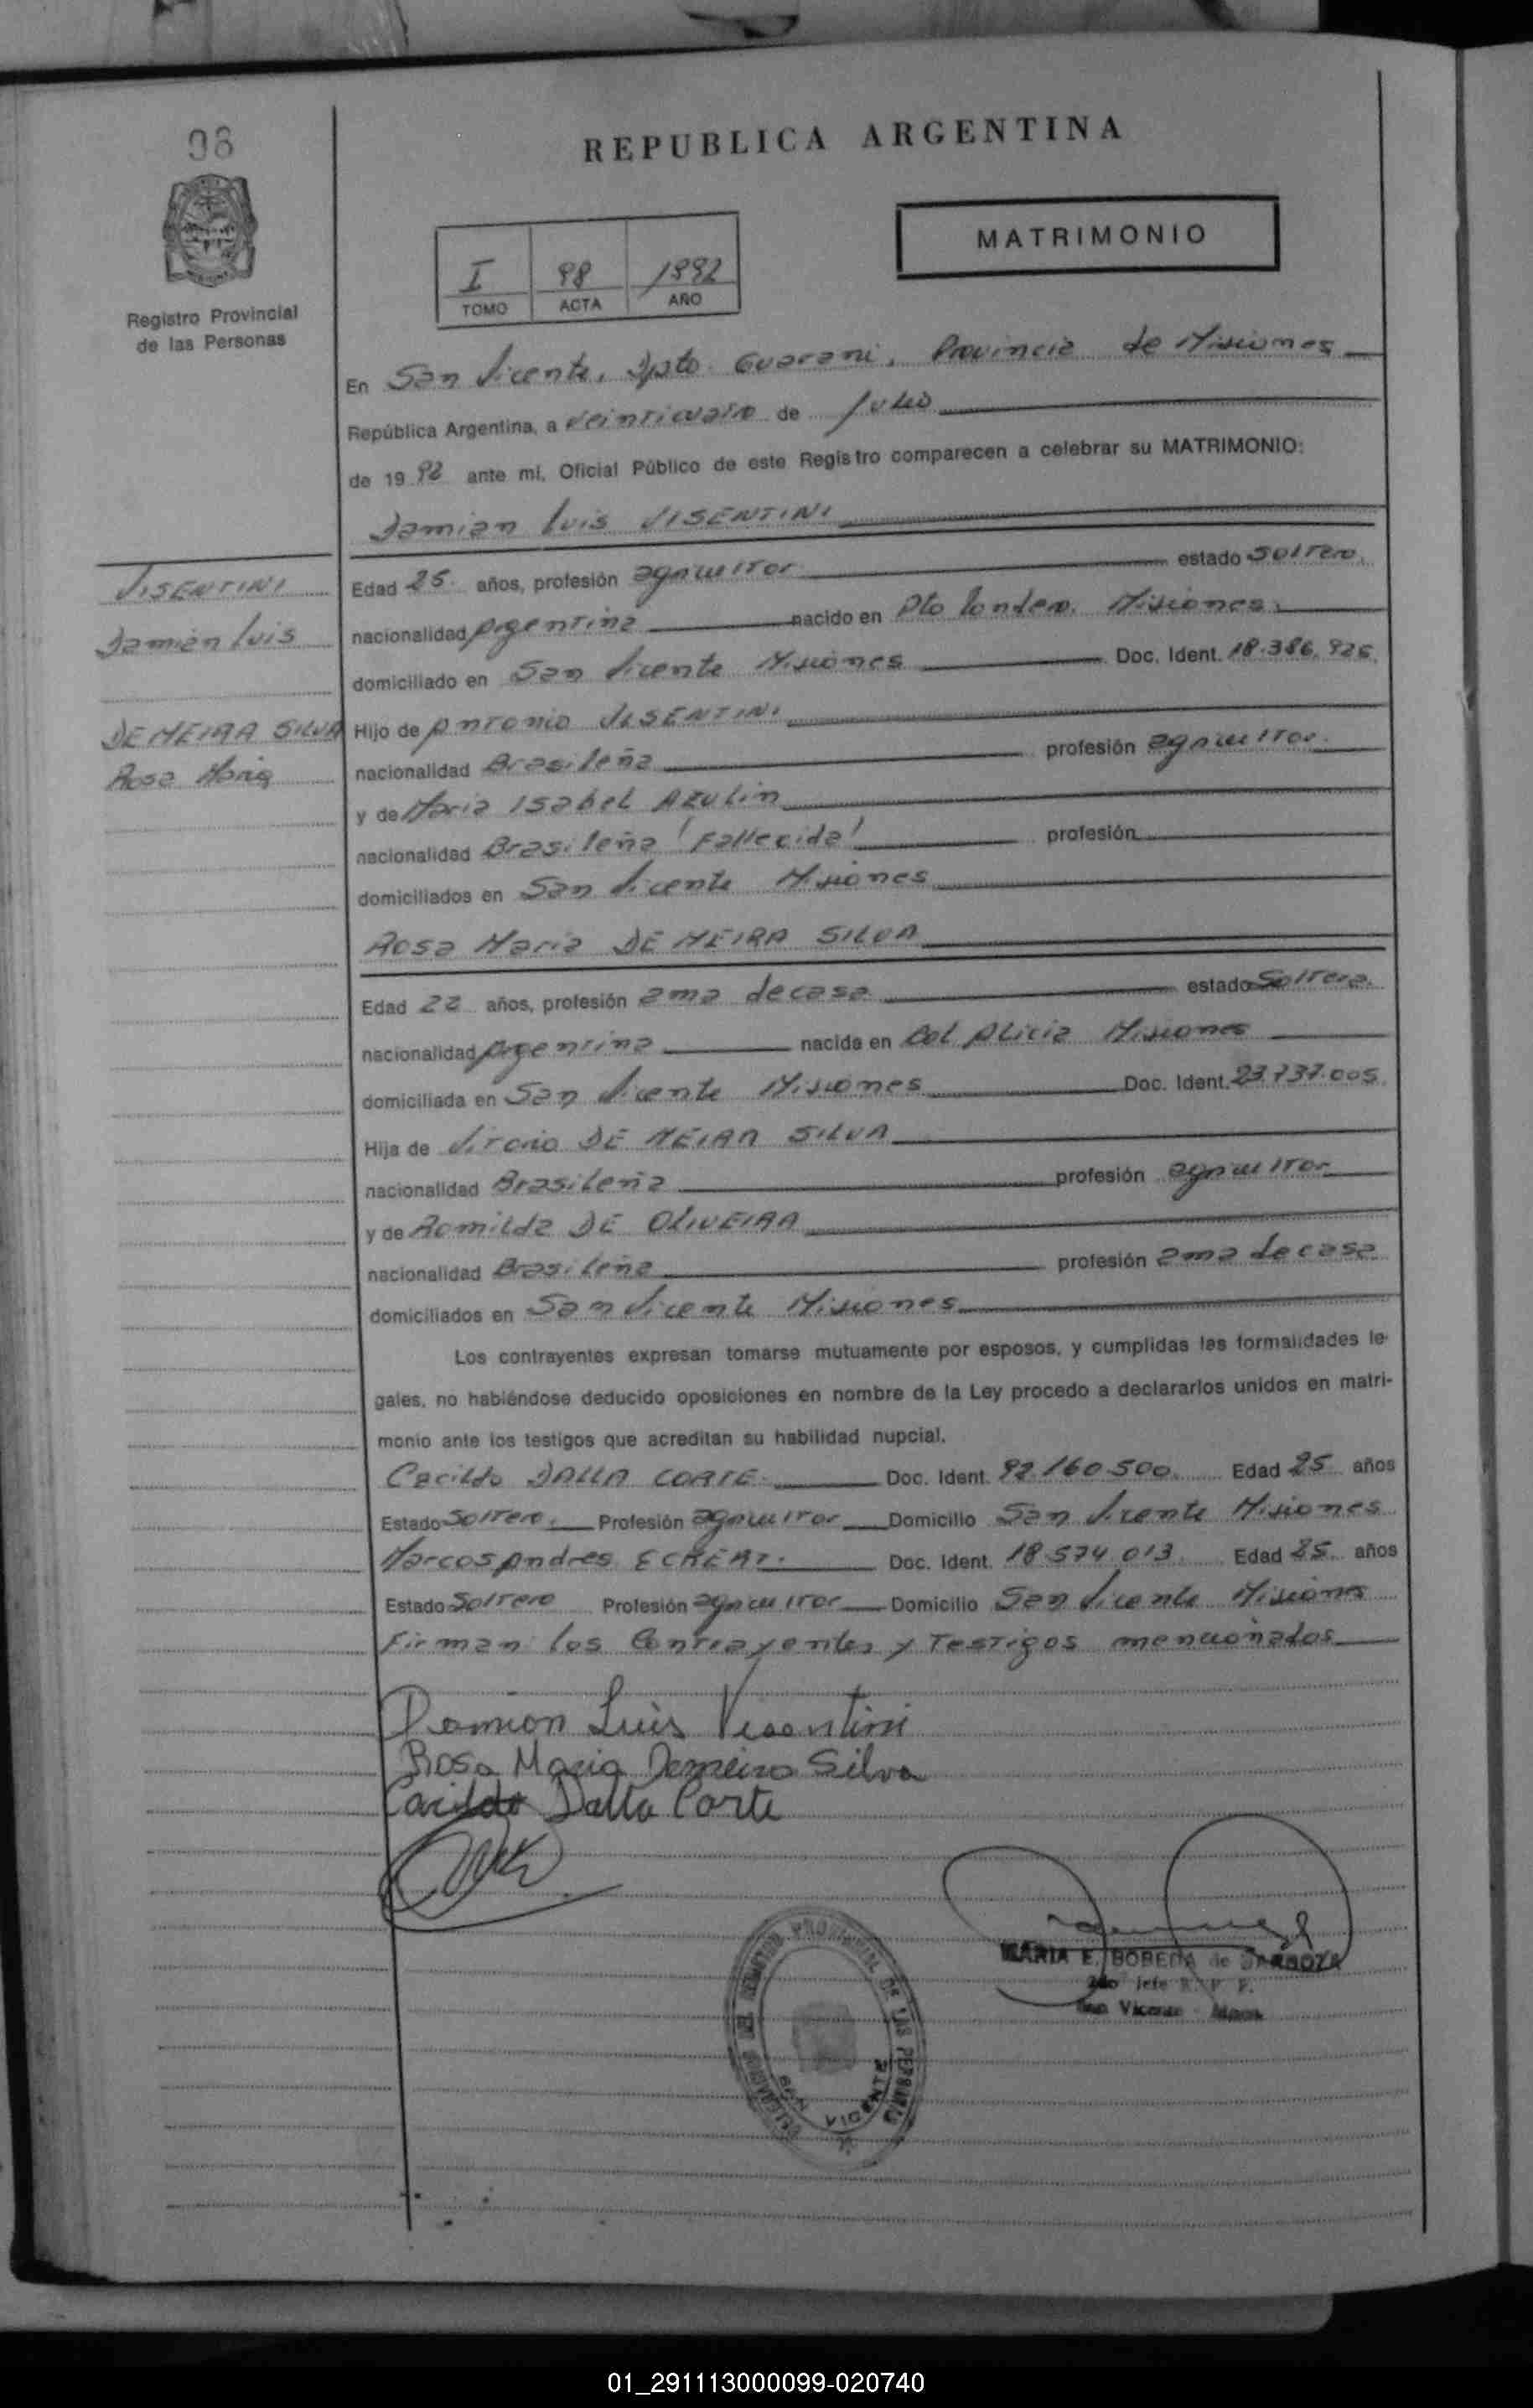 98
REPUBLICA ARGENTINA
MATRIMONIO
I 98 1992
TOMO ACTA AÑO
Registro Provincial
de las Personas
En San Vicente, Dpto Guarani, Provincia de Misiones
República Argentina, a veinticuatro de Julio
de 1992 ante mí, Oficial Público de este Registro comparecen a celebrar su MATRIMONIO:
Damian Luis VISENTINI
VISENTINI
Damian Luis
DE MEIRA SILVA
Rosa Maria
Edad 25 años, profesión agricultor estado Soltero
nacionalidad Argentina nacido en Pto Misiones
domiciliado en San Vicente Misiones Doc. Ident. 18.386.926
Hijo de Antonio VISENTINI
nacionalidad Brasileña profesión agricultor
y de Maria Isabel AZULIN
nacionalidad Brasileña (Fallecida) profesión
domiciliados en San Vicente Misiones
Rosa Maria DE MEIRA SILVA
Edad 22 años, profesión ama de casa estado Soltera
nacionalidad Argentina nacida en Col Alicia Misiones
domiciliada en San Vicente Misiones Doc. Ident. 23.737.005
Hija de DE MEIRA SILVA
nacionalidad Brasileña profesión agricultor
y de Romilda DE OLIVEIRA
nacionalidad Brasileña profesión ama de casa
domiciliados en San Vicente Misiones
Los contrayentes expresan tomarse mutuamente por esposos, y cumplidas las formalidades le-
gales, no habiéndose deducido oposiciones en nombre de la Ley procedo a declararlos unidos en matri-
monio ante los testigos que acreditan su habilidad nupcial.
Cacildo DALLA CORTE Doc. Ident. 92.160.500 Edad 25 años
Estado Soltero Profesión agricultor Domicilio San Vicente Misiones
Marcos Andres Doc. Ident. 18.574.013 Edad 25 años
Estado Soltero Profesión agricultor Domicilio San Vicente Misiones
Firman los Contrayentes y Testigos mencionados
Damian Luis Visentini
Rosa Maria Demeira Silva
Cacildo Dalla Corte
MARIA E. BOBEDA de BARBOZA
2do Jefe R. P. P.
San Vicente - Mnes.
DELEGACION DEL REGISTRO PROVINCIAL DE LAS PERSONAS
SAN VICENTE
01_291113000099-020740